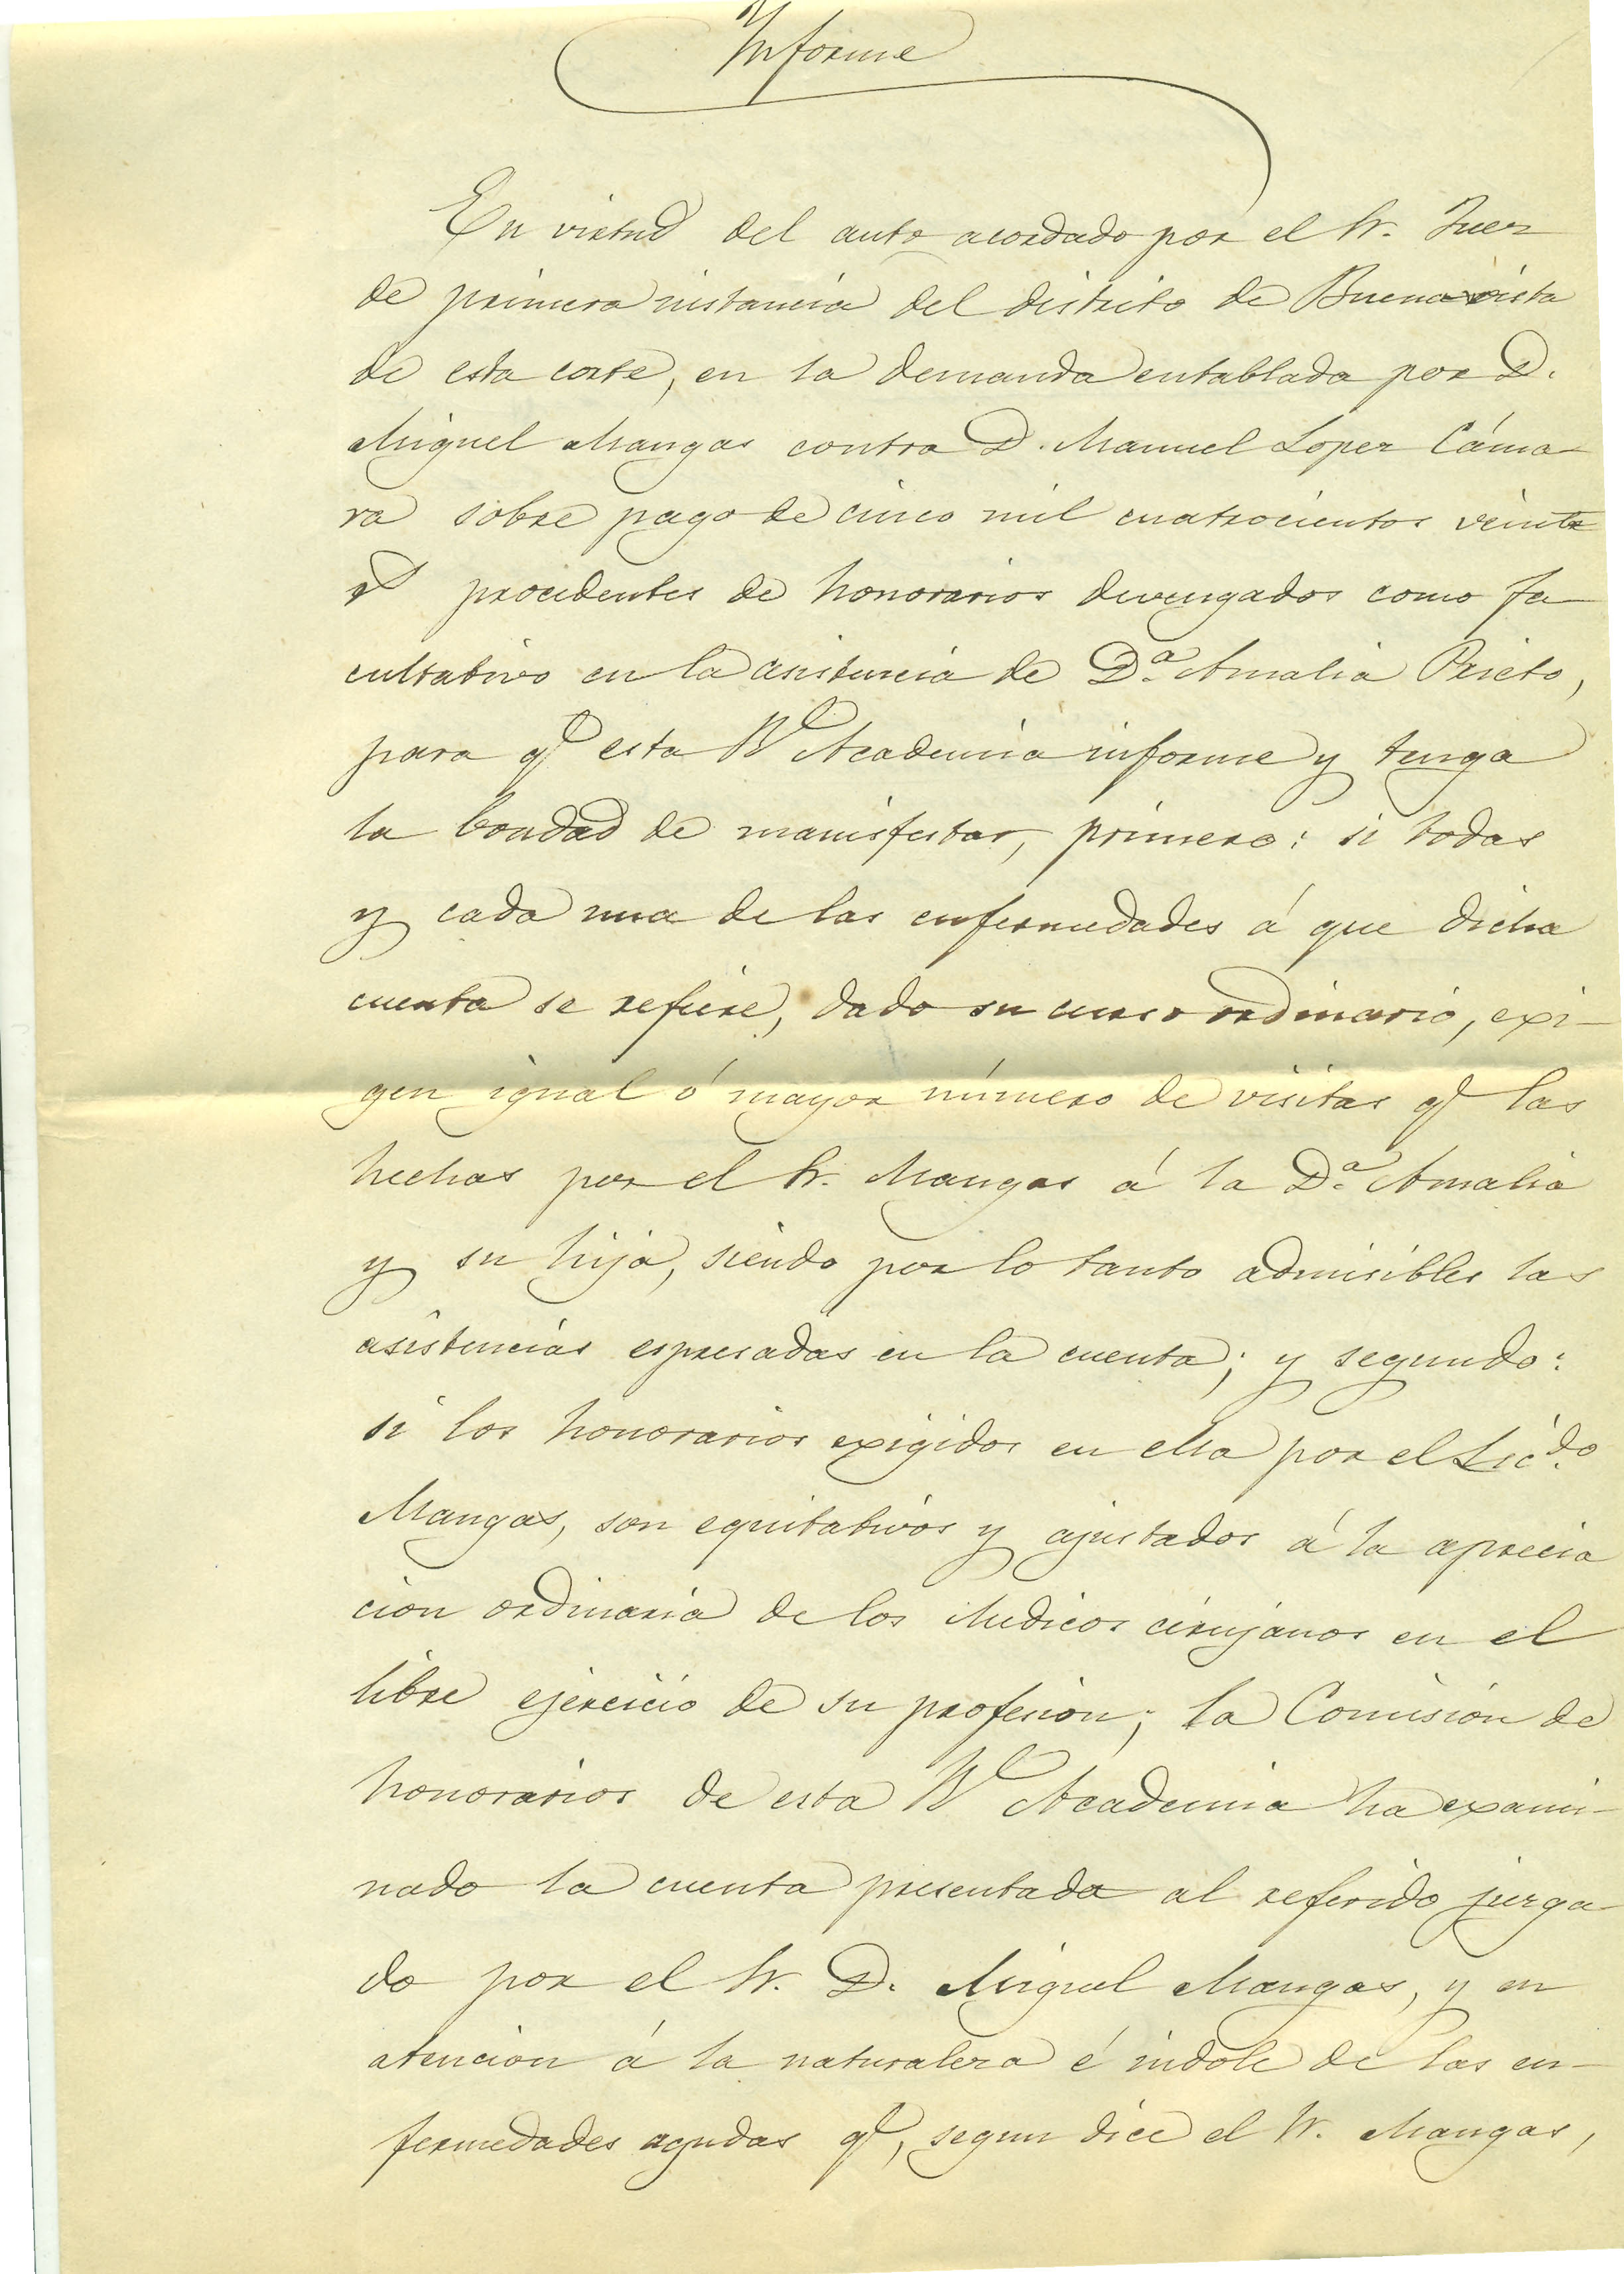 Informe
En virtud del auto acordado por el Sr. Juez
de primera instancia del distrito de Buenavista
de esta corte, en la demanda entablada por D.
Miguel Mangas contra D. Manuel Lopez Cáma-
ra sobre pago de cinco mil cuatrocientos veinte
rs procedentes de honorarios devengados como fa-
cultativo en la asistencia de D.ª Amalia Prieto,
para q.e esta Rl Academia informe y tenga
la bondad de manisfestar, primero: si todas
y cada una de las enfermedades á que dicha
cuenta se refiere, dado su curso ordinario, exi-
gen igual ó mayor número de visitas q.e las
hechas por el Sr. Mangas á la D.ª Amalia
y su hija, siendo por lo tanto admisibles las
asistencias espresadas en la cuenta; y segundo:
si los honorarios exigidos en ella por el Licdo.
Mangas, son equitativos y ajustados á la aprecia
cion ordinaria de los Medicos cirujanos en el
libre ejercicio de su profesion; la Comision de
honorarios de esta Rl Academia ha exami-
nado la cuenta presentada al referido juzga-
do por el Sr. D. Miguel Mangas, y en
atencion á la naturaleza é indole de las en-
fermedades agudas q.e, segun dice el Sr. Mangas,